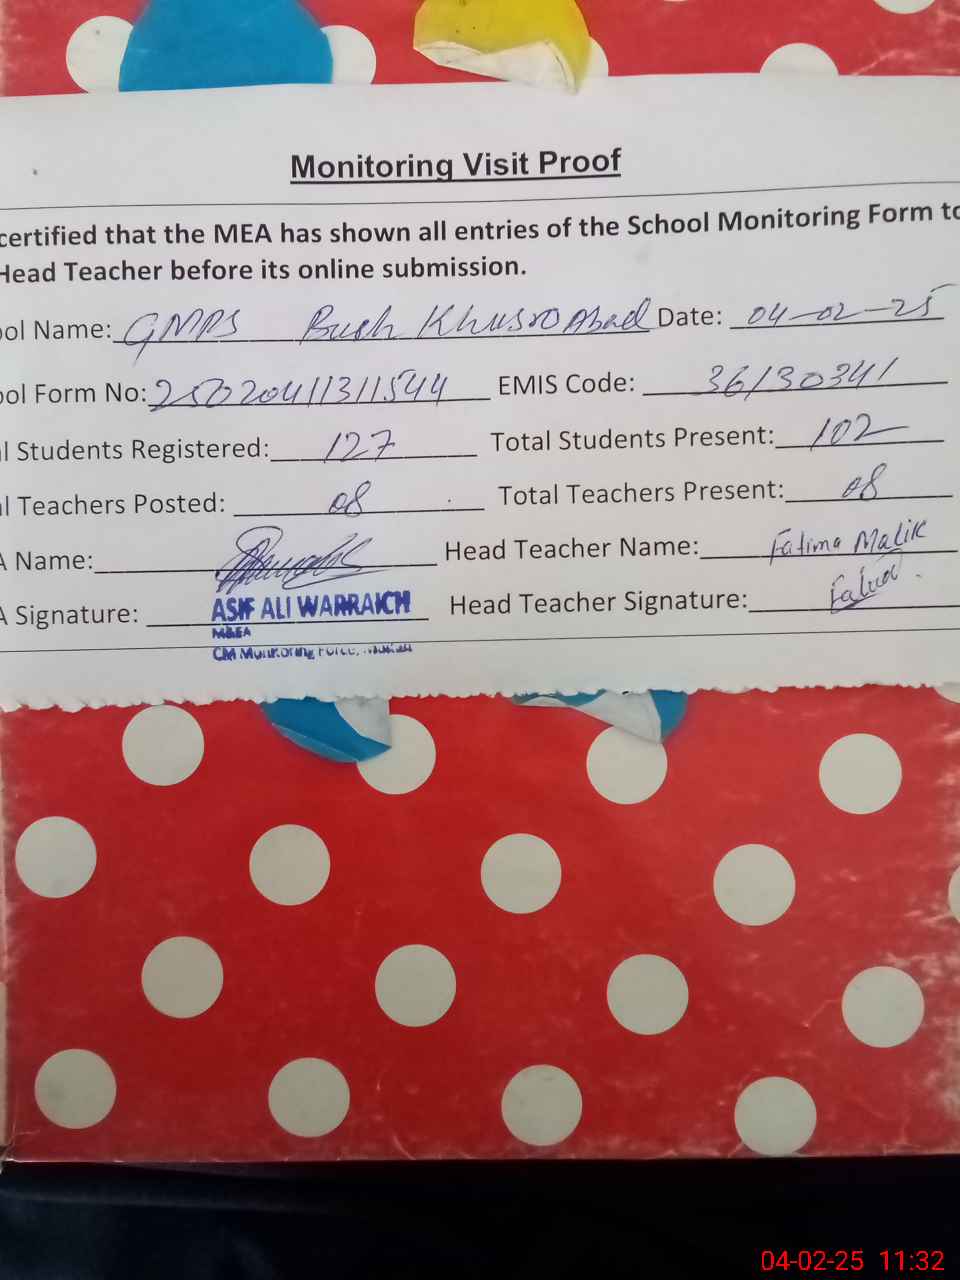 Monitoring Visit Proof
certified that the MEA has shown all entries of the School Monitoring Form to
Head Teacher before its online submission.
ool Name: GMPS Bush Khusro Abad Date: 04-02-25
ool Form No: 25020411311544 EMIS Code: 36130341
l Students Registered: 127 Total Students Present: 102
l Teachers Posted: 08 Total Teachers Present: 08
A Name: Head Teacher Name: Fatima Malik
A Signature: ASIF ALI WARRAICH Head Teacher Signature: Fatima
MEA
CM Monitoring Force,
04-02-25 11:32